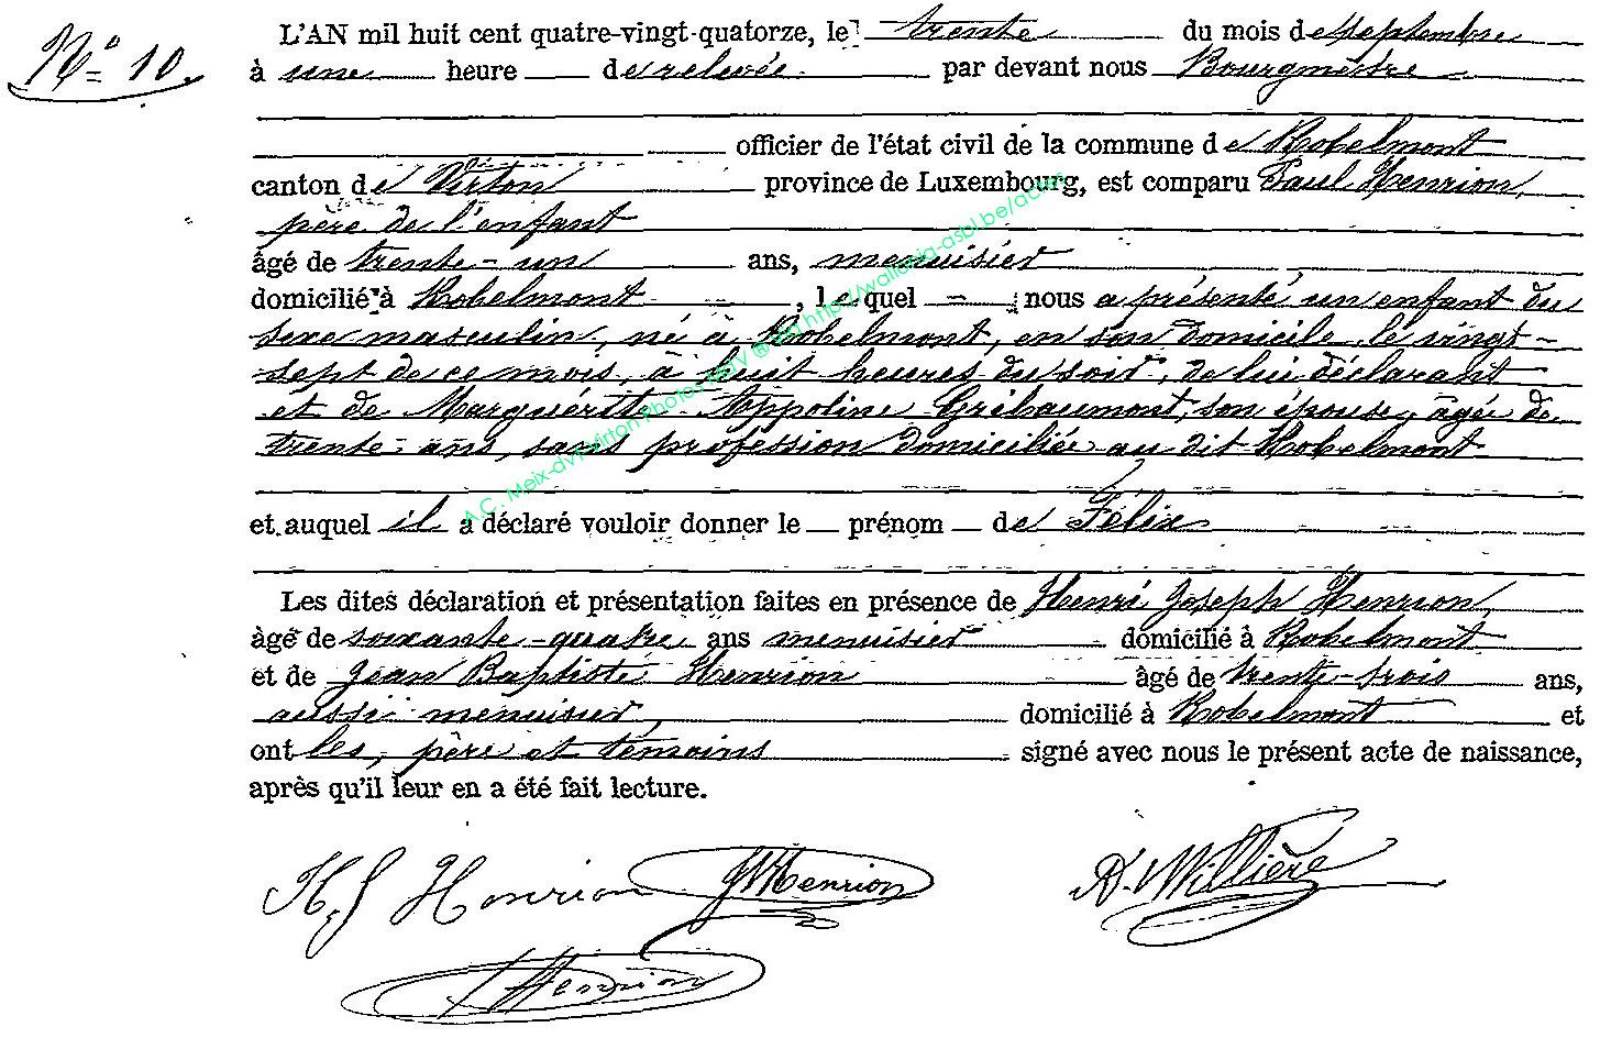 N° 10.
L'AN mil huit cent quatre-vingt-quatorze, le trente du mois de septembre
à une heure de relevée par devant nous Bourgmestre
officier de l'état civil de la commune de Robelmont
canton de Virton province de Luxembourg, est comparu Paul Henrion,
père de l'enfant
âgé de trente-un ans, menuisier
domicilié à Robelmont, lequel nous a présenté un enfant du
sexe masculin, né à Robelmont, en son domicile, le vingt-
sept de ce mois, à huit heures du soir, de lui déclarant
et de Marguérite Appoline Gribaumont, son épouse, âgée de
trente ans, sans profession domiciliée au dit Robelmont
et auquel il a déclaré vouloir donner le prénom de Félix
Les dites déclaration et présentation faites en présence de Henri Joseph Henrion,
âgé de soixante-quatre ans menuisier domicilié à Robelmont
et de Jean Baptiste Henrion âgé de trente-trois ans,
aussi menuisier, domicilié à Robelmont et
ont les, père et témoins signé avec nous le présent acte de naissance,
après qu'il leur en a été fait lecture.
H. J Henrion Henrion A. Willière
Henrion
A.C. Meix-dvt-Virton Photos MDV @ http://wallonia-asbl.be/actes